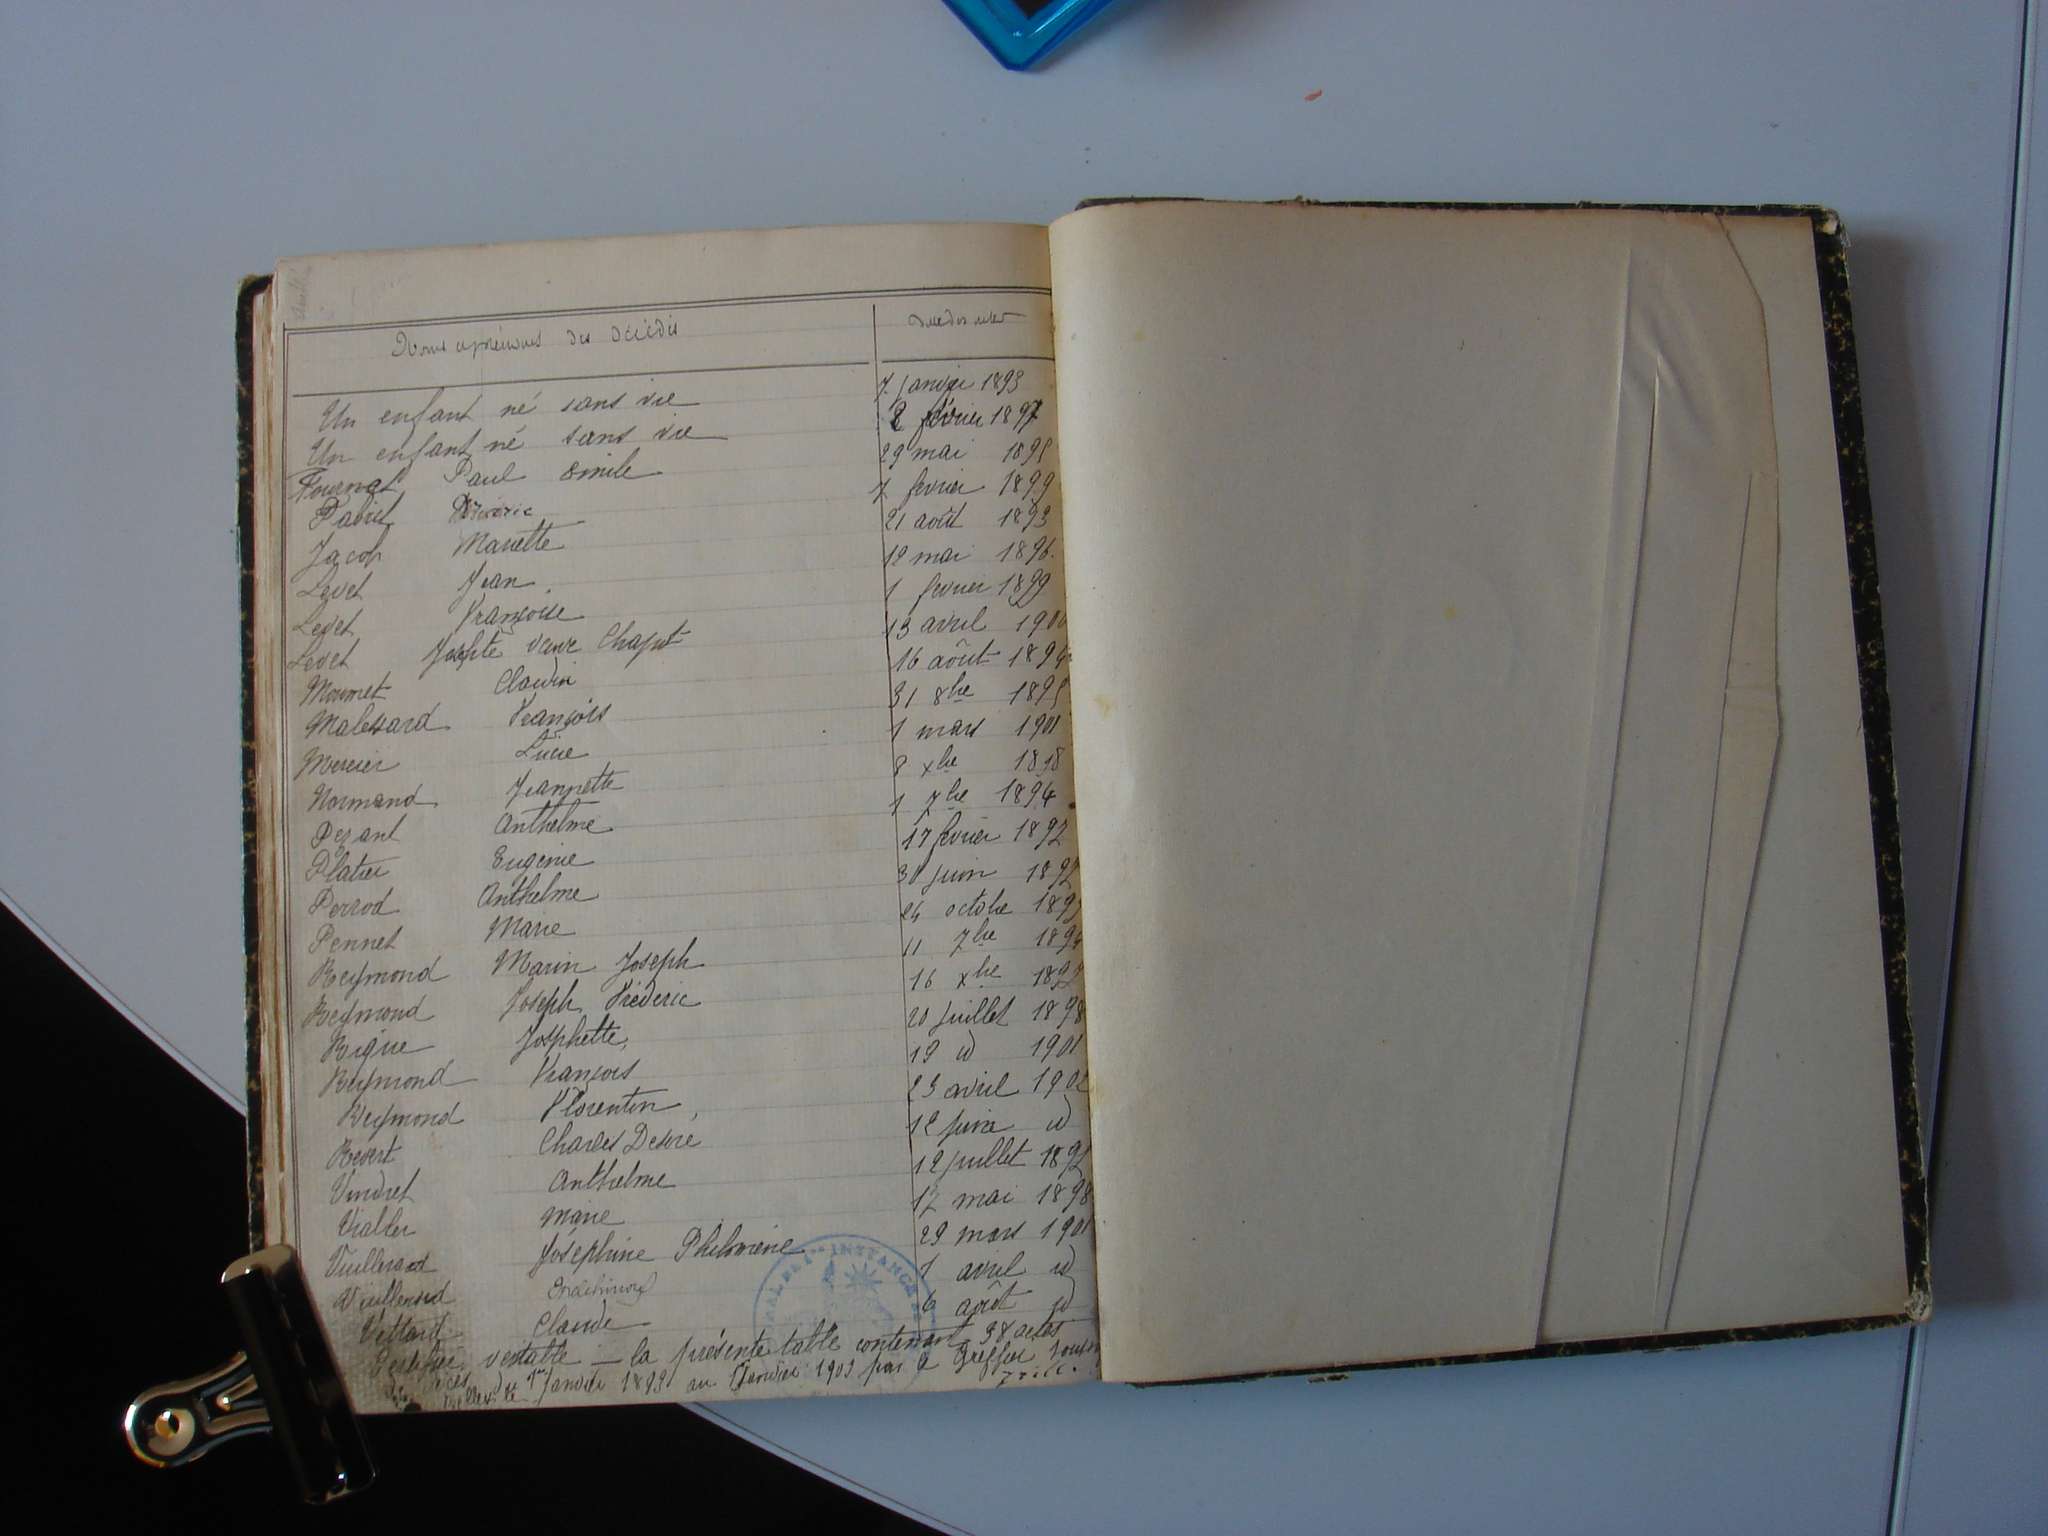 Noms et prénoms des décédés Date des actes
Un enfant né sans vie 7 janvier 1893
Un enfant né sans vie 2 février 1897
Fournat Paul Emile 29 mai 1895
Paviet 7 février 1899
Jacob Mariette 21 août 1893
Levet Jean 12 mai 1896
Levet Françoise 1 février 1899
Levet Josephte veuve Chaput 13 avril 1900
Mournet Claudin 16 août 1894
Malessard François 31 8bre 1895
Mercier Lucie 1 mars 1901
Normand Jeannette 8 xbre 1898
Pezant Anthelme 1 7bre 1894
Platier Eugénie 17 février 1897
Perrod Anthelme 30 juin 1897
Pennet Marie 24 octobre
Reymond Marin Joseph 11 7bre
Reymond Joseph Frédéric 16 xbre 1899
Rigue Josephette 20 juillet 1898
Reymond François 19 id 1901
Reymond Florentin 23 avril 1902
Revert Charles Désiré 12 id
Vindret Anthelme 12 juillet
Viallet Marie 17 mai 1898
Vuillerod Joséphine Philomène 29 mars 1901
Vuillerod 1 avril id
Vettard Claude 6 août id
Certifiée véritable la présente table contenant 38 actes
1er Janvier 1893 au 1 Janvier 1903 par le Greffier
1re INSTANCE